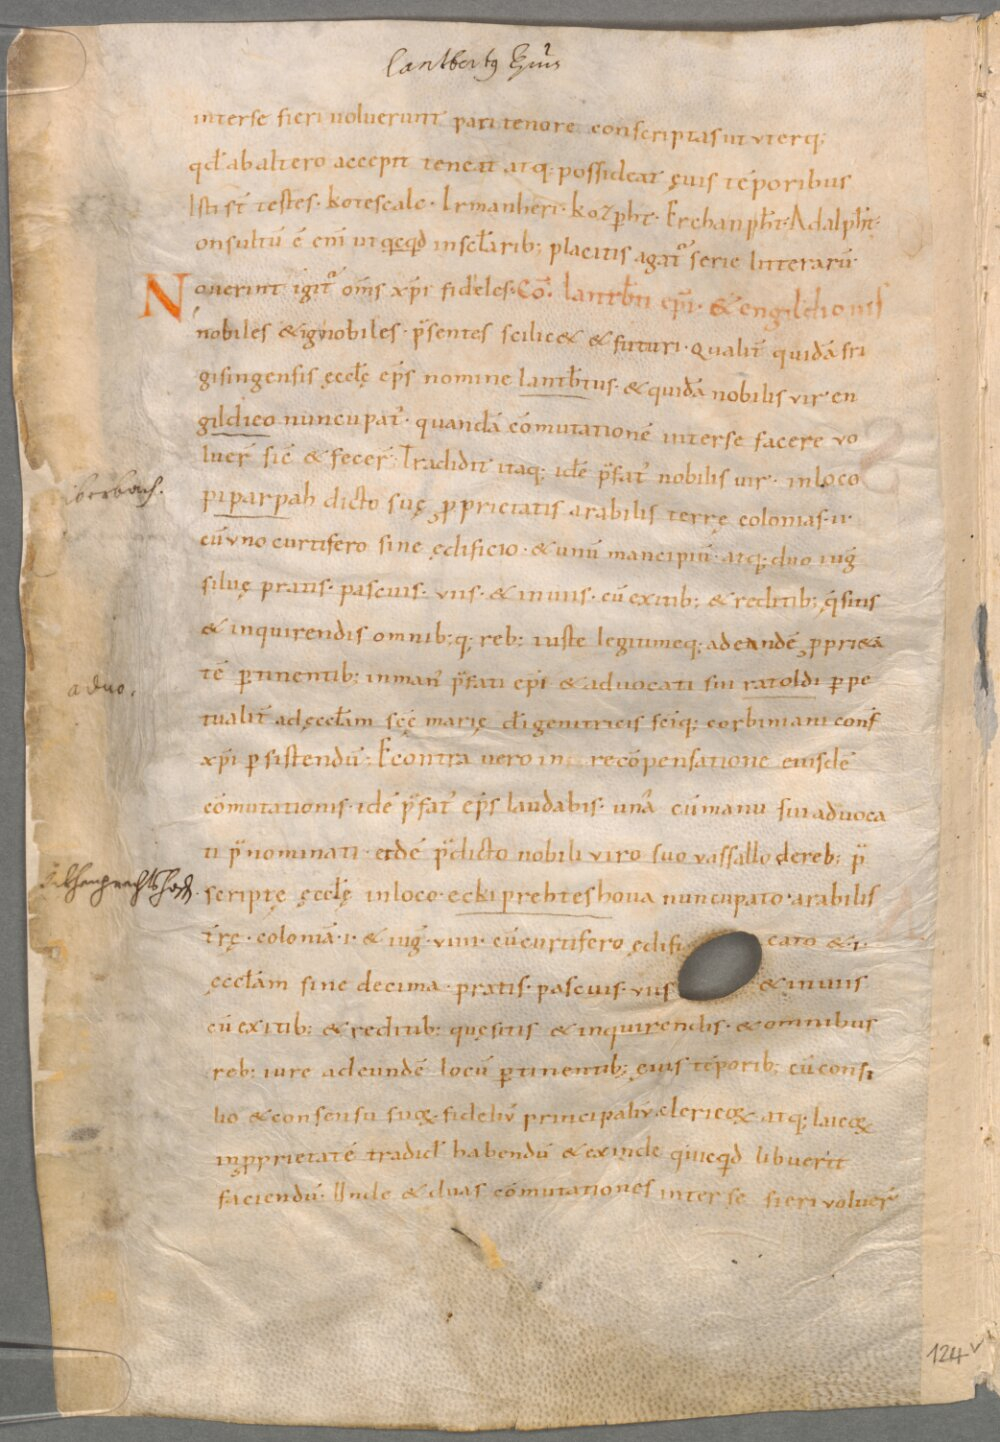 lantbertus Epus
interse fieri voluerunt pari tenore conscriptas ut uterq;
qđ ab altero accepit teneat atq; possideat ęuis tēporibus
Isti st̄ testes. Kotescalc. Irmanheri. Kozp̄ht. Erchanp̄ht. Adalp̄ht.
onsultū ē eni ut qcqd insclarib; placitis agat serie litterarū.
Nouerint igit om̄s xp̄i fideles. Cō. lantb̄ti ep̄i. & engildionis
nobiles & ignobiles. p̄sentes scilic& & futuri. qualit̄ quidā fri
gisingensis ęcclę ep̄s nomine lantb̄tus. & quidā nobilis vir en
gildieo nuncupat̄. quandā cōmutationē interse facere vo
luer̄ sic̄ & fecer̄. Tradidit itaq; idē p̄fat̄ nobilis vir. inloco
iberbach.
piparpah dicto suę ppprietatis arabilis terrę colonias. ii.
cū uno curtifero sine ędificio. & unū mancipiū. atq; duo iuḡ
silvę pratis. pascuis. viis. & inviis. cū exitib; & reditib; q̄sitis
& inquirendis omnib;q; reb; iuste legitimeq; ad eandē ppri&a
aduo.
tē ptinentib; inman̄ p̄fati ep̄i & advocati sui ratoldi ppe
tualit̄ ad ęccłam scę marię dī genitricis sciq; corbiniani conf̄
xp̄i psistendū; Econtra vero in recōpensatione eiusdē
cōmutationis. idē p̄fat̄ ep̄s laudabis. unā cū manu sui advoca
ti p̄nominati. eidē p̄dicto nobili viro suo vassallo de reb; p̄
scriptę ęcclę inloco. eckiprehteshova nuncupato. arabilis
tr̄ę. coloniā. i. & iuḡ. viiii. cū curtifero ędifi cato & i.
ęccłam sine decima. pratis. pascuis. viis & inviis
cū exitib; & reditib; quęsitis & inquirendis. & omnibus
reb; iure ad eundē locū ptinentib; ęuis tēporib; cū consi
lio & consensu suoꝝ. fideliū principaliū clericoꝝ. atq; laicoꝝ
inpprietatē tradid̄ habendū & exinde quicqd libuerit
faciendū. Unde & duas cōmutationes inter se fieri voluer̄
124v